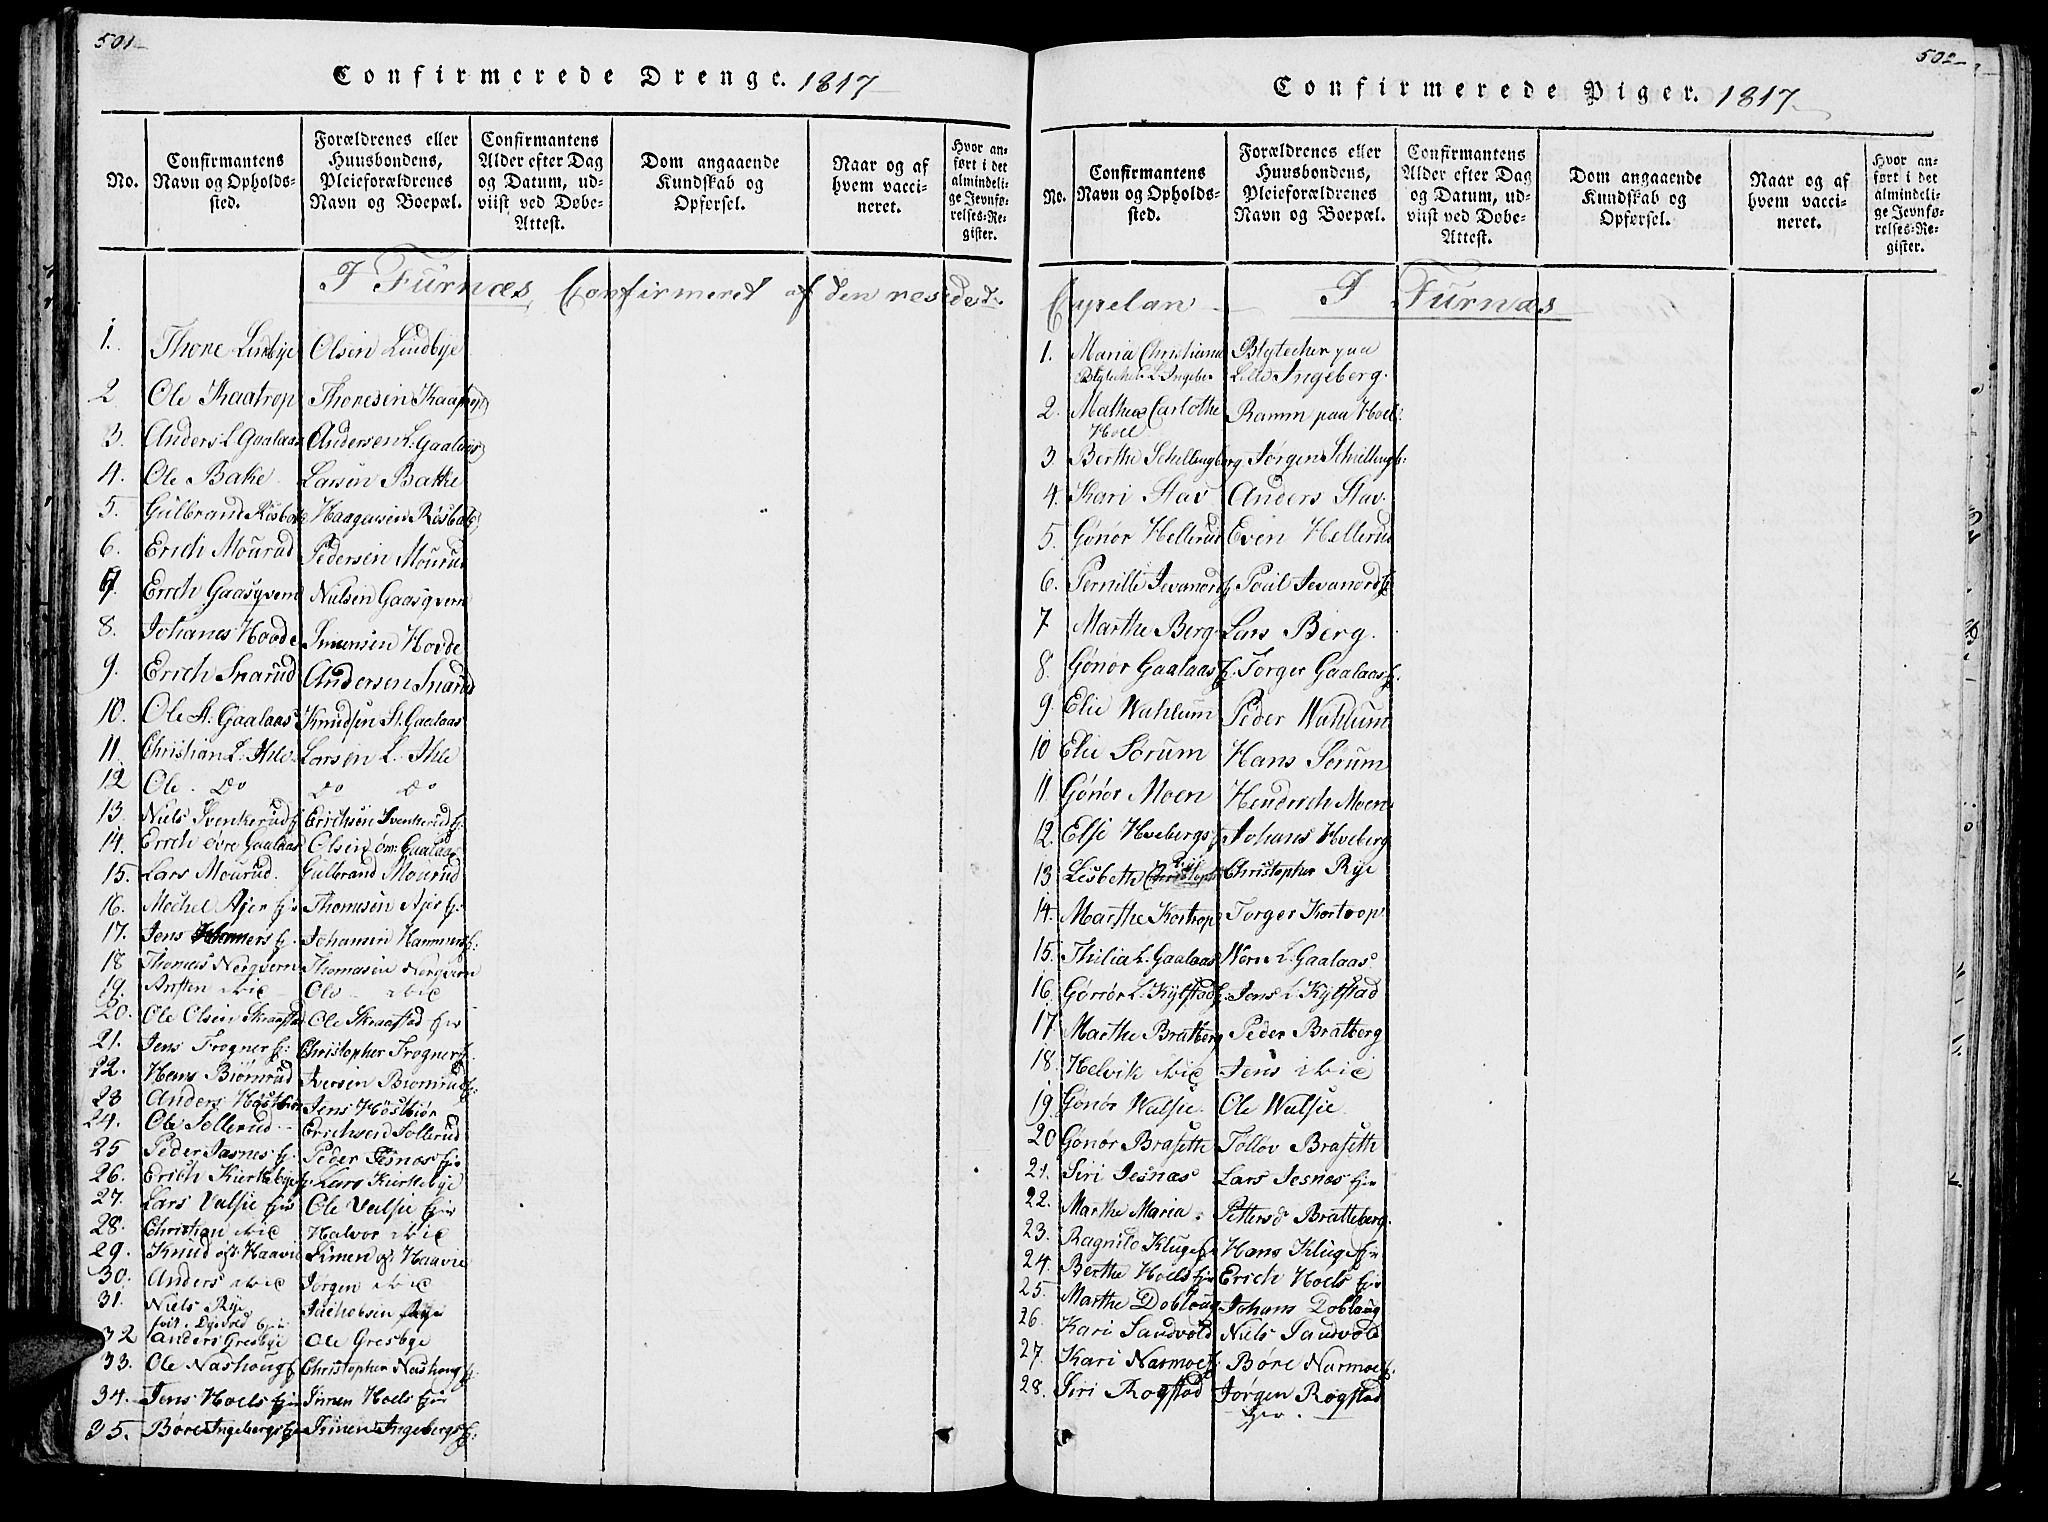 501
Confirmerede Drenge. 1817
No.
Confirmantens Navn og Opholds-sted.
Forældrenes eller Huusbondens, Pleieforældrenes Navn og Boepæl.
Confirmantens Alder efter Dag og Datum, ud-viist ved Døbe-Attest.
Dom angaaende Kundskab og Opførsel.
Naar og af hvem vacci-neret.
Hvor an-ført i det almindeli-ge Jevnfø-relses-Re-gister.
I Furnæs, Confirmeret af den resided:
1. Thore Lindbye Olsen Lindbye
2 Ole Kaatrop Thoresen Kaatrop
3. Anders L Gaalaas Andersen L: Gaalaas
4. Ole Bake Larsen Bakke
5. Gulbrand Røsbak Haagensen Røsbak
6. Erich Mourud Pedersen Mourud
7. Erich Gaasqvern Nielsen Gaasqvern
8. Johanes Hovde Simensen Hovde
9. Erich Snarud Andersen Snarud
10. Ole St: Gaalaas Knudsen St: Gaalaas
11. Christian L. Ihle Larsen L. Ihle
12 Ole. Do Do Do
13. Niels Svenkerud Erichsen Svenkerud
14. Erich øvre Gaalaas Olsen øvr: Gaalaas
15. Lars Mourud. Gulbrand Mourud
16. Mechel Ajer Ejer Thomesen Ajer Ej:
17. Jens Hammers ej. Johansen Hammers ej:
18 Thomas Nerqvern Thomasen Nerqvern
19. Ansten ibid Ols ibid
20. Ole Olsen Skraastad Ole Skraastad Ejer
21. Jens Frogner Ej: Christopher Frogner Ej.
22. Hans Biørnrud Iversen Biørnrud Ej:
23 Anders Høstbiør Jens Høstbiør
24. Ole Sollerud Erichsen Sollerud
25 Peder Jesnes Ej. Peder Jesnes Ejer
26. Erich Kirkebye Ej. Lars Kirkebye
27. Lars Valsie Ejer Ole Valsie Ejer
28. Christian ibid Halvor ibid
29. Knud øst Haavie Simen øst Haavie
30. Anders ibid Jørgen ibid
31. Niels Rye Jachobsen Rye
32 Anders Gresbye Ole Gresbye
33. Ole Nashoug Ej Christopher Nashoug Ej.
34. Jens Hoels Ejer Simen Hoels Ejer
35. Børe Ingebergs Ejer Simen Ingebergs Ej:
502
Confirmerede Piger. 1817.
No.
Confirmantens Navn og Opholds-sted.
Forældrenes eller Huusbondens, Pleieforældrenes Navn og Boepæl.
Confirmantens Alder efter Dag og Datum, ud-viist ved Døbe-Attest.
Dom angaaende Kundskab og Opførsel.
Naar og af hvem vacci-neret.
Hvor an-ført i det almindeli-ge Jevnfø-relses-Re-gister.
Capelan I Furnæs
1. Maria Christiana Blytecker paa
Blytecker L Ingeber Lille Ingeberg.
2. Mathea Carlothe Ramm paa Hoel:
Hoel
3. Berthe Schellingberg Jørgen Schellingb:
4. Kari Stav Anders Stav.
5. Gønør Hellerud Even Hellerud
6. Pernille Jevanord Ej Poul Jevanord Ej
7 Marthe Berg Lars Berg.
8. Gønør Gaalaas Ej. Torger Gaalaas Ej.
9. Elie Wahlum Peder Wahlum
10 Elie Sørum Hans Sørum
11. Gønør Moen Hendrich Moen
12. Elsje Hvebergs Ej Johans Hveberg
13 Lisbette Rye Christopher Rye
14. Marthe Kortrop Torger Kortrop
15. Thilia L. Gaalaas L. Gaalaas
16. Gønør L. Kylstad Ej. Jens L Kylstad
17. Marthe Bratberg Peder Bratberg
18. Helvik ibid Jens ibid
19 Gønør Walsie. Ole Walsie.
20 Gønør Brasette Tolløv Brasette
21. Siri Jesnæs Lars Jesnæs Ejer
22. Marthe Maria. Petters d Bratteberg.
23. Ragnild Kluge Ejer Hans Kluge Ejer
24. Berthe Hoels Ejer Erich Hoels Ejer
25. Marthe Dobloug Johans Doblaug
26. Kari Sandvold Niels Sandvold
27. Kari Narmoe Ej: Børe Narmoe Ej.
28. Siri Rogstad Jørgen Rogstad
Ejer.